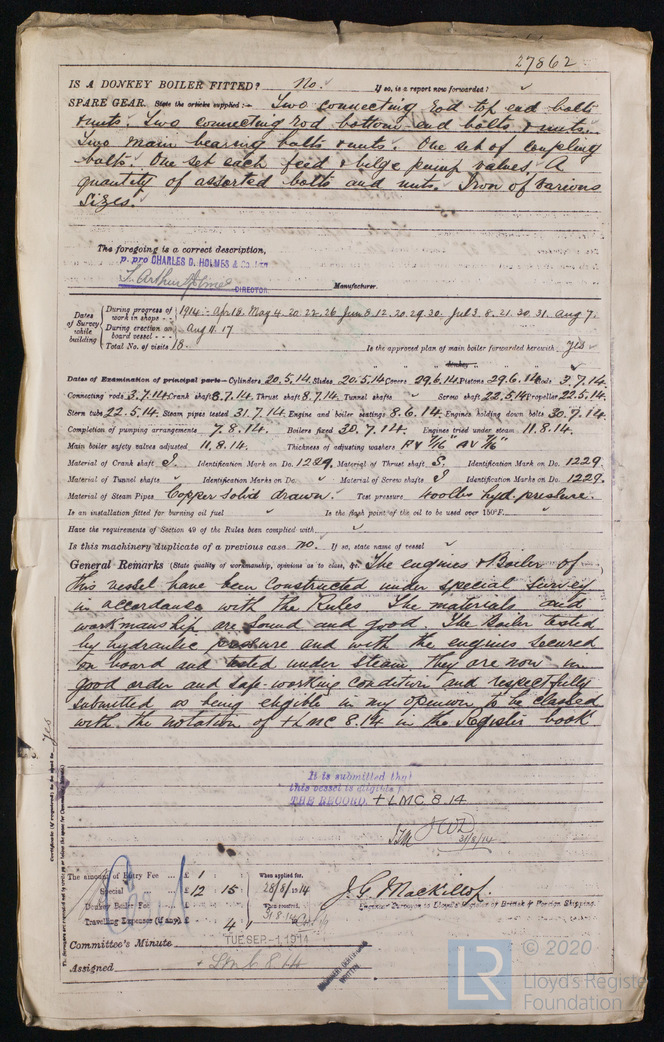 27862
IS A DONKEY BOILER FITTED? No. If so, is a report now forwarded?
SPARE GEAR. State the articles supplied:— Two connecting rod top end bolts
& nuts. Two connecting rod bottom end bolts & nuts.
Two main bearing bolts & nuts. One set of coupling
bolts. One set each feed & bilge pump valves. A
quantity of assorted bolts and nuts. Iron of various
sizes.
The foregoing is a correct description,
p. pro CHARLES D. HOLMES & Co. Ltd
T. Arthur Holmes DIRECTOR Manufacturer.
Dates of Survey while building
During progress of work in shops - - 1914:- Apr 18. May 4. 20. 22. 26. Jun 8. 12. 20. 29. 30. Jul 3. 8. 21. 30. 31. Aug 7.
During erection on board vessel - - - Aug 11. 17
Total No. of visits 18. Is the approved plan of main boiler forwarded herewith yes
" " " donkey " " "
Dates of Examination of principal parts—Cylinders 20.5.14 Slides 20.5.14 Covers 29.6.14 Pistons 29.6.14 Rods 3.7.14
Connecting rods 3.7.14 Crank shaft 8.7.14 Thrust shaft 8.7.14 Tunnel shafts Screw shaft 22.5.14 Propeller 22.5.14
Stern tube 22.5.14 Steam pipes tested 31.7.14 Engine and boiler seatings 8.6.14 Engines holding down bolts 30.7.14
Completion of pumping arrangements 7.8.14. Boilers fixed 30.7.14 Engines tried under steam 11.8.14.
Main boiler safety valves adjusted 11.8.14. Thickness of adjusting washers PV 7/16" AV 7/16"
Material of Crank shaft I. Identification Mark on Do. 1229. Material of Thrust shaft S. Identification Mark on Do. 1229.
Material of Tunnel shafts Identification Marks on Do. Material of Screw shafts I Identification Marks on Do. 1229.
Material of Steam Pipes Copper solid drawn. Test pressure 400 lbs hyd. pressure.
Is an installation fitted for burning oil fuel Is the flash point of the oil to be used over 150°F.
Have the requirements of Section 49 of the Rules been complied with
Is this machinery duplicate of a previous case no. If so, state name of vessel
General Remarks (State quality of workmanship, opinions as to class, &c. The engines & Boiler of
this vessel have been constructed under special survey
in accordance with the Rules. The materials and
workmanship are sound and good. The Boiler tested
by hydraulic pressure and with the engines secured
on board and tested under steam. They are now in
good order and safe working condition and respectfully
submitted as being eligible in my opinion to be classed
with the notation of + LMC 8.14 in the Register book
It is submitted that
this vessel is eligible for
THE RECORD. + LMC 8.14
31/8/14
The amount of Entry Fee ... £ 1 : : When applied for,
Special ... £ 12 : 15 : 28/8/1914
Donkey Boiler Fee ... £ : : When received,
Travelling Expenses (if any) £ : 4 : 31.8.14
J. G. Mackillop.
Engineer Surveyor to Lloyd's Register of British & Foreign Shipping.
Committee's Minute TUE. SEP -1 1914
Assigned + Lmc 8.14
MACHINERY CERTIFICATE WRITTEN
Certificate (if required) to be sent to
Yes
© 2020
LR Lloyd's Register
Foundation